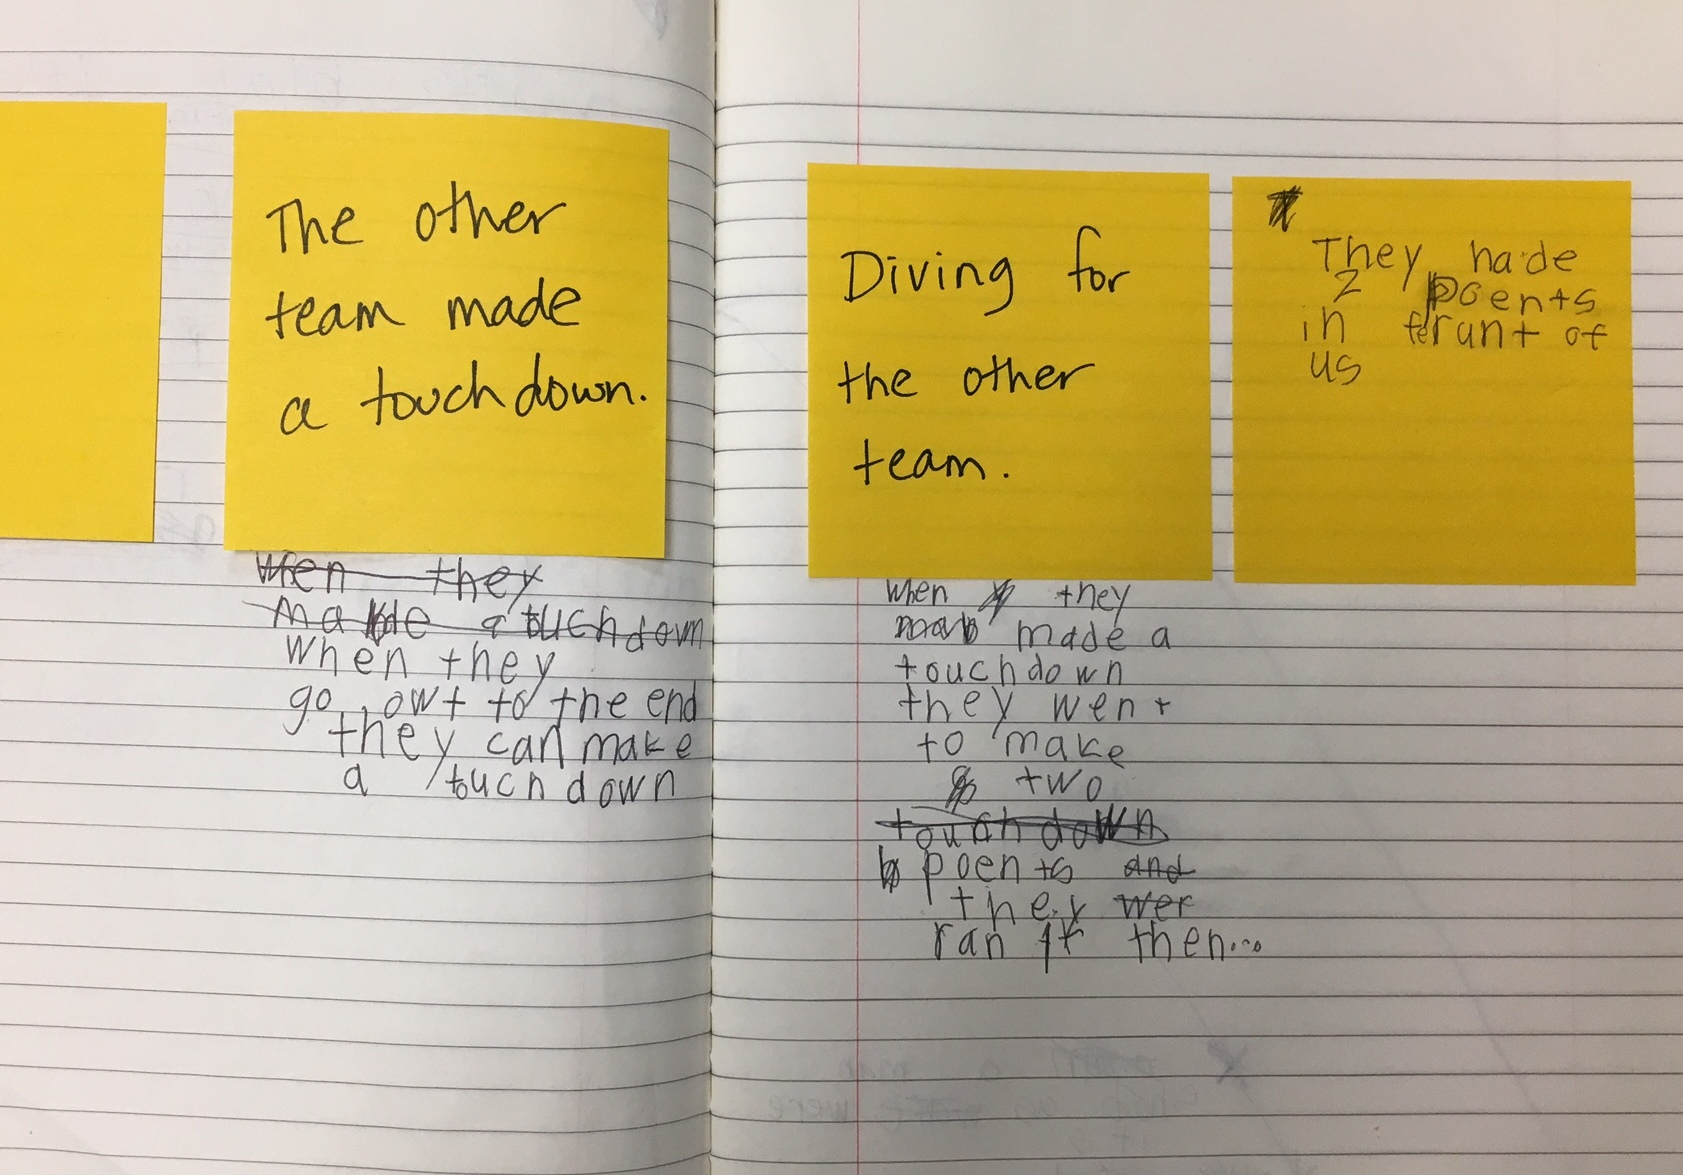 The other
team made
a touchdown.
When they
made a touchdown
when they
go owt to the end
they can make
a touchdown
Diving for
the other
team.
They hade
2 poents
in frunt of
us
when they
made a
touchdown
they went
to make
two
touchdown
poents and
they wer
ran it then...